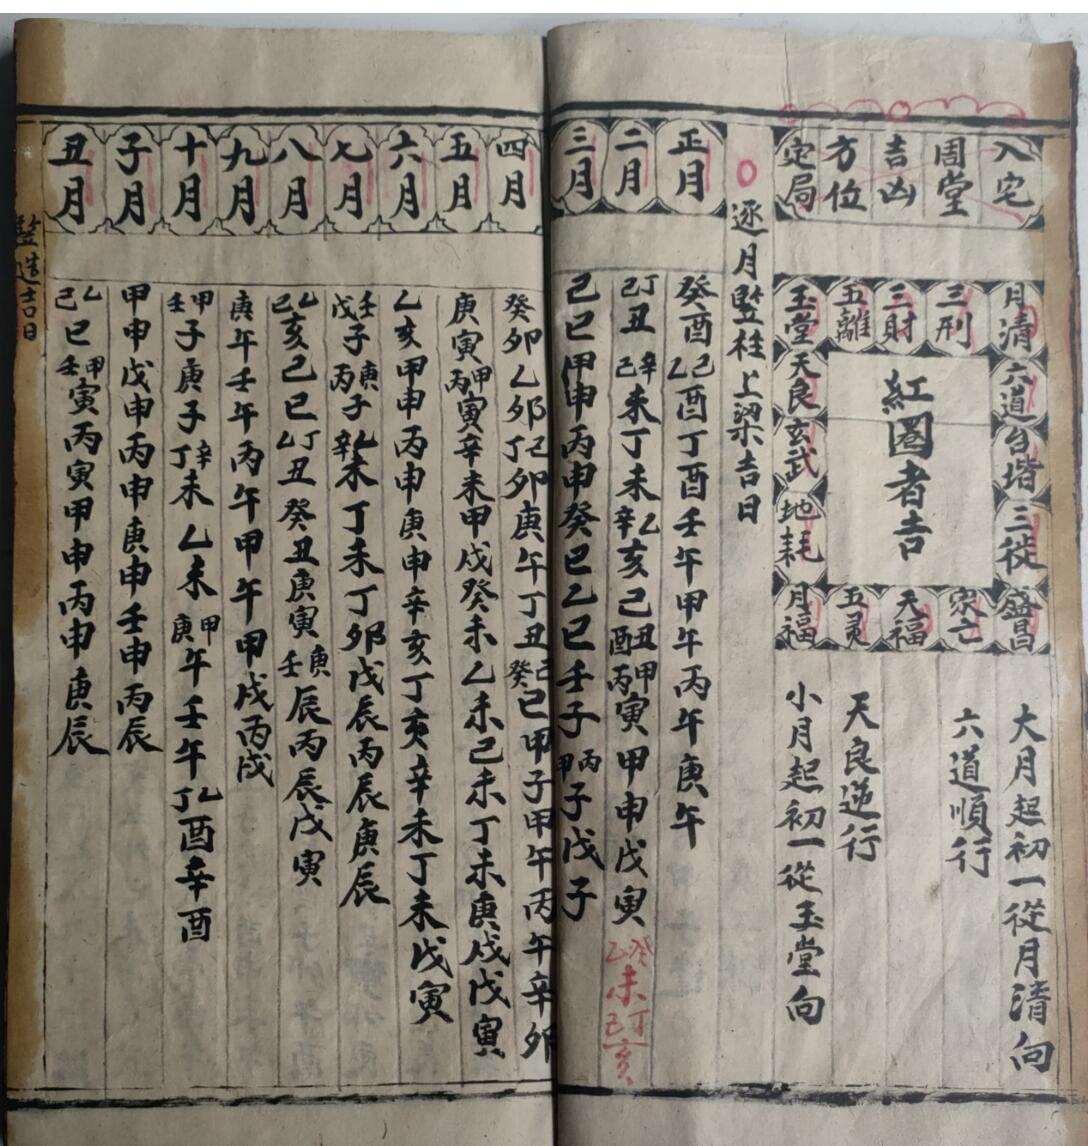 入宅
周堂
吉凶
方位
定局
月清
六道
台堦
三徙
盛昌
三刑
三財
五離
玉堂
天良
玄武
地耗
月福
五灵
天福
宗亡
紅圈者吉
大月起初一從月清向
六道順行
天良逆行
小月起初一從玉堂向
逐月竪柱上梁吉日
正月
癸酉乙己酉丁酉壬午甲午丙午庚午
二月
己丁丑己辛未丁未辛乙亥己丑酉丙甲寅甲申戊寅乙癸未己丁亥
三月
己巳甲申丙申癸巳乙巳壬子甲丙子戊子
四月
癸卯乙卯丁己卯庚午丁丑癸己巳甲子甲午丙午辛卯
五月
庚寅丙甲寅辛未甲戌癸未乙未己未丁未庚戌戊寅
六月
乙亥甲申丙申庚申辛亥丁亥辛未丁未戊寅
七月
戊壬子丙庚子辛乙未丁未丁卯戊辰丙辰庚辰
八月
己乙亥己巳乙丁丑癸丑庚寅壬庚辰丙辰戊寅
九月
庚午壬午丙午甲午甲戌丙戌
十月
壬甲子庚子丁辛未乙未庚甲午壬午丁乙酉辛酉
子月
甲申戊申丙申庚申壬申丙辰
丑月
己乙巳壬甲寅丙寅甲申丙申庚辰
竪造吉日